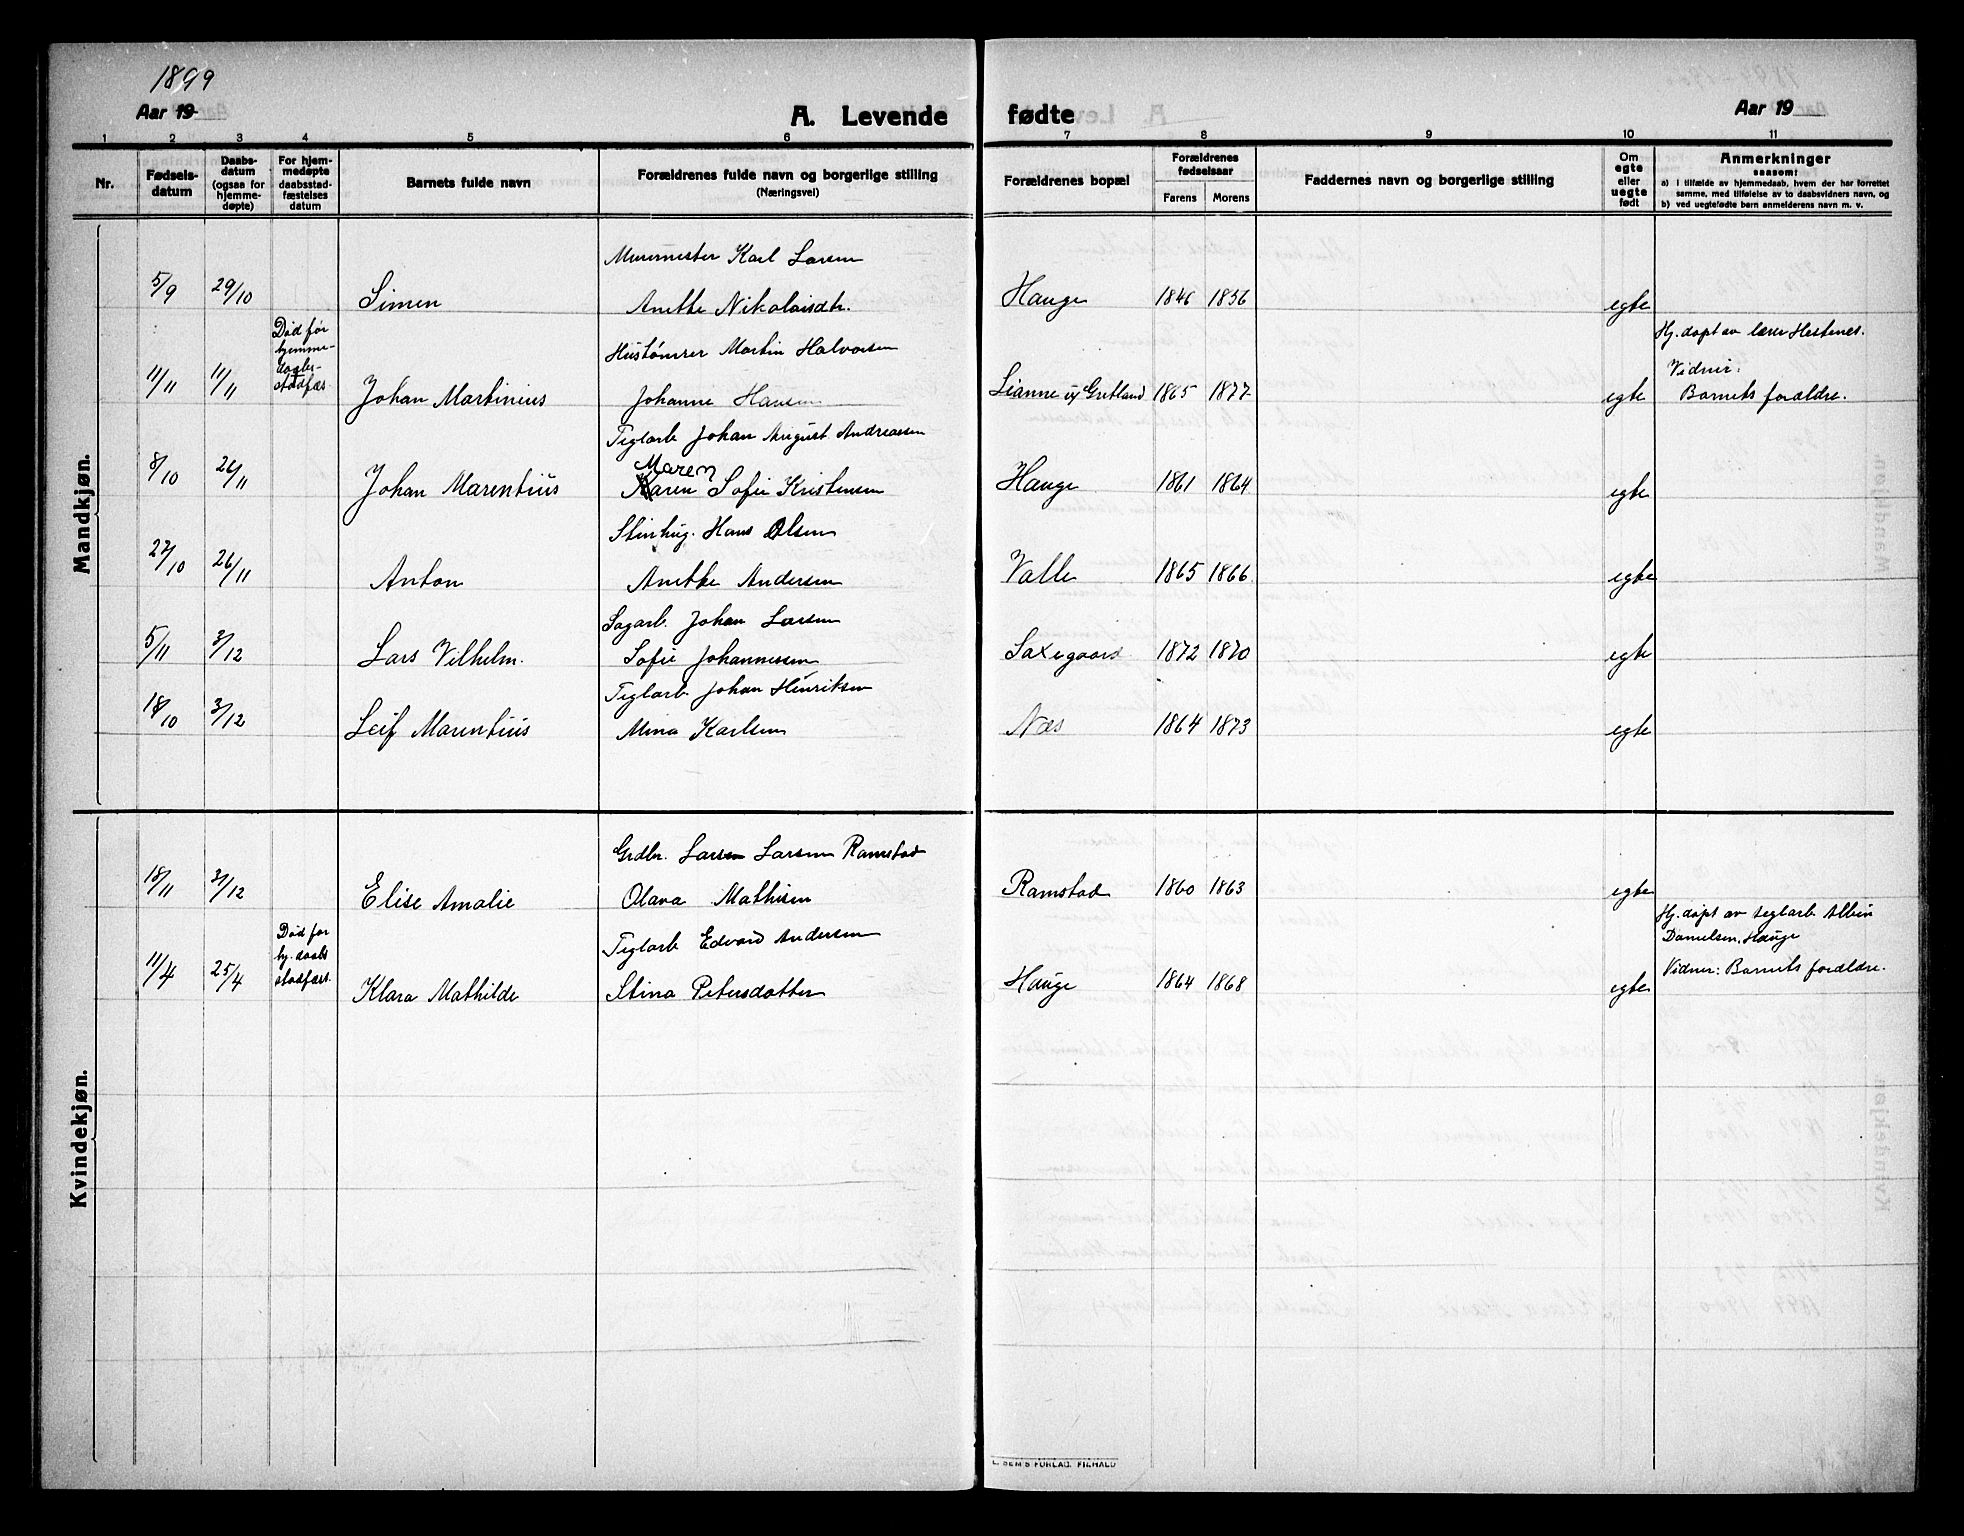 1899
Aar 19
A. Levende fødte
Aar 19
1 2 3 4 5 6 7 8 9 10 11
Nr.
Fødsels-
datum
Daabs-
datum
(ogsaa for
hjemme-
døpte)
For hjem-
medøpte
daabsstad-
fæstelses
datum
Barnets fulde navn
Forældrenes fulde navn og borgerlige stilling
(Næringsvei)
Forældrenes bopæl
Forældrenes
fødselsaar
Farens Morens
Faddernes navn og borgerlige stilling
Om
egte
eller
uegte
født
Anmerkninger
saasom:
a) i tilfælde av hjemmedaab, hvem der har forrettet
samme, med tilføielse av to daabsvidners navn, og
b) ved uegtefødte barn anmelderens navn m. v.
Mandkjøn.
Murermester Karl Larsen
5/9 29/10 Simen Anethe Nikolaisdtr. Hauge 1846 1856 egte
Død før
hjemme-
daabs-
stadfæs.
Hustømrer Martin Halvorsen
Hj. døpt av lærer Hestenes.
Vidner:
11/11 11/11 Johan Martinius Johanne Hansen Lianne u/ Gretland 1865 1877 egte Barnets forældre.
Teglarb. Johan August Andreassen
Maren
8/10 26/11 Johan Marentius Karen Sofie Kristensen Hauge 1861 1864 egte
Stenhug. Hans Olsen
27/10 26/11 Anton Anethe Andersen Valle 1865 1866 egte
Sagarb. Johan Larsen
5/11 3/12 Lars Vilhelm. Sofie Johannessen Saxegaard 1872 1870 egte
Teglarb. Johan Henriksen
18/10 3/12 Leif Marentius Mina Karlsen Næs 1864 1873 egte
Kvindekjøn.
Grdbr. Larsen Larsen Ramstad
18/11 31/12 Elise Amalie Olava Mathisen Ramstad 1860 1863 egte
Død før
hj. daabs
stadfæst.
Teglarb Edvard Andersen
Hj. døpt av teglarb Albin
Danielsen, Hauge
11/4 25/4 Klara Mathilde Stina Petersdatter Hauge 1864 1868 egte Vidner: Barnets forældre.
SEM'S FORLAG, F.HALD